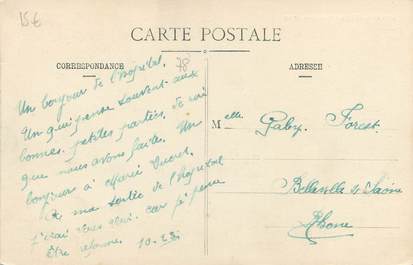 15€
CARTE POSTALE
78
CORRESPONDANCE
ADRESSE
Un bonjour de l'hôpital.
Un qui pense souvent aux
bonnes petites parties de
que nous avons faite. Un
bonjour à Marie
A ma sortie de l'hôpital
j'irai vous voir. car je pense
être réforme. 10-23
Melle Gaby Forest
Belleville s/ Saône
Rhône